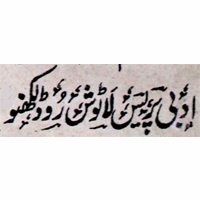 ادبی پریس لاٹوش روڈ لکھنو